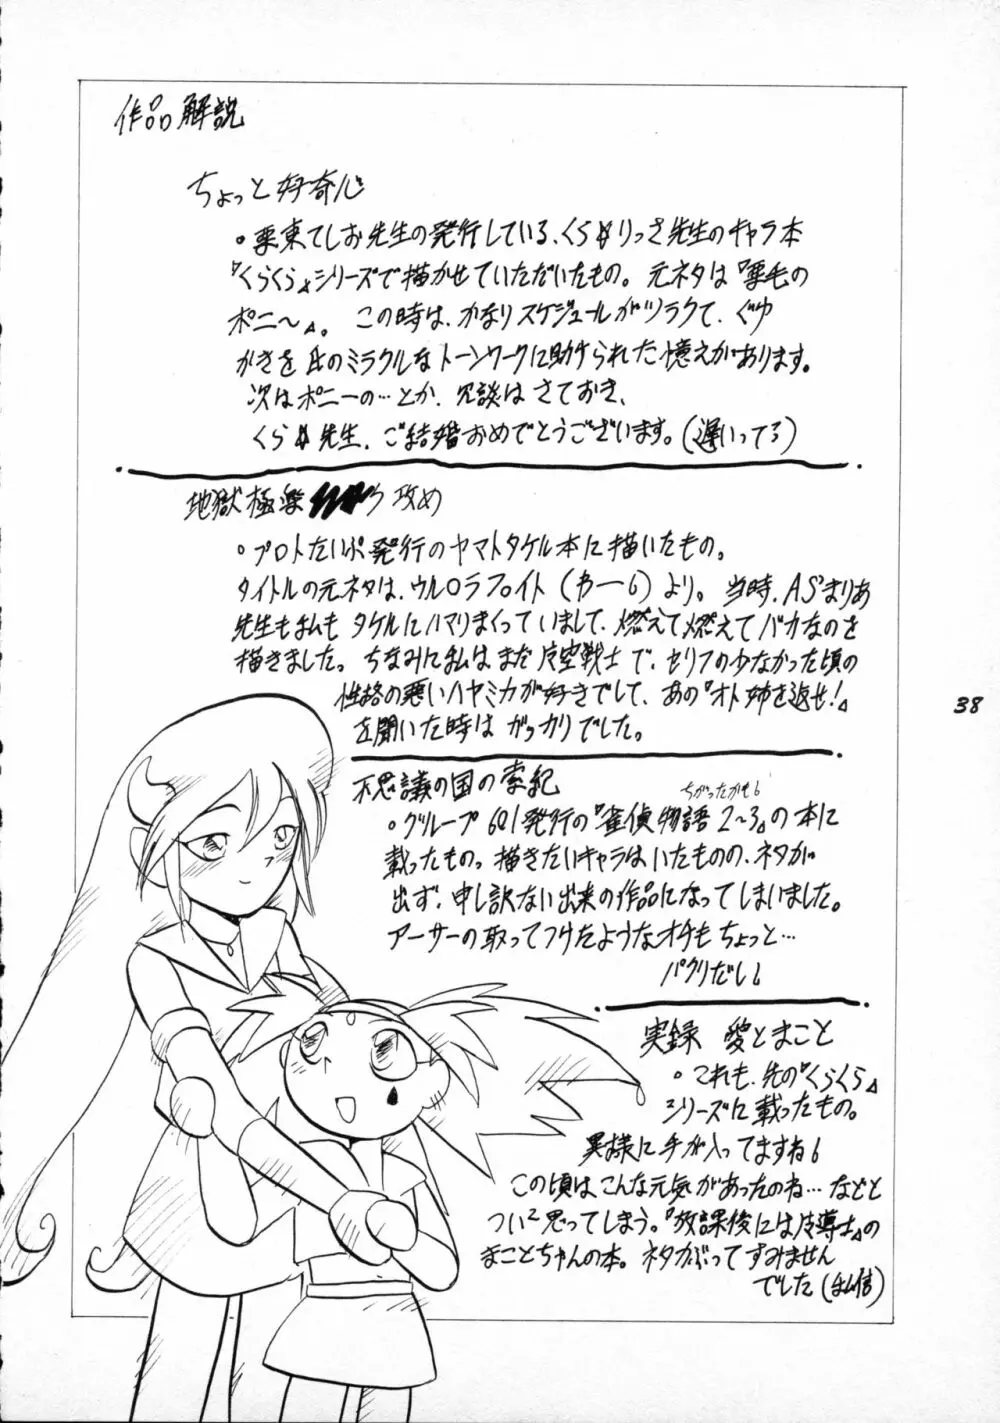 作品解説
ちょっと好奇心
・栗東てしお先生の発行している、くら☆りっさ先生のキャラ本
『くらくら』シリーズで描かせていただいたもの。元ネタは『栗毛の
ポニ〜』。この時は、かなりスケジュールがツラクて、ぐゆ
がきを氏のミラクルなトーンワークに助けられた憶えがあります。
次はポニーの…とか、冗談はさておき、
くら☆先生、ご結婚おめでとうございます。(遅いってろ)
地獄極楽 攻め
・プロトたいぷ発行のヤマトタケル本に描いたもの。
タイトルの元ネタは、ウルロラファイト(わー6)より。当時、AS'まりあ
先生も私もタケルにハマりまくっていまして、燃えて燃えてバカなのを
描きました。ちなみに私はまだ 空戦士で、セリフの少なかった頃の
性格の悪いハヤミカが好きでして、あの『オト姉を返せ!』
を聞いた時はガッカリでした。
不思議の国の索紀
ちがったかも6
・グループ601発行の『雀偵物語2〜3』の本に
載ったもの。描きたいキャラはいたものの、ネタが
出ず、申し訳ない出来の作品になってしまいました。
アーサーの取ってつけたようなオチもちょっと…
パクリだし6
実録 愛とまこと
・これも、先の『くらくら』
シリーズに載ったもの。
異様に手が入ってますね6
この頃はこんな元気があったのね…などと
つい2思ってしまう。『放課後には 導士』の
まことちゃんの本。ネタかぶってすみません
でした(私信)
38